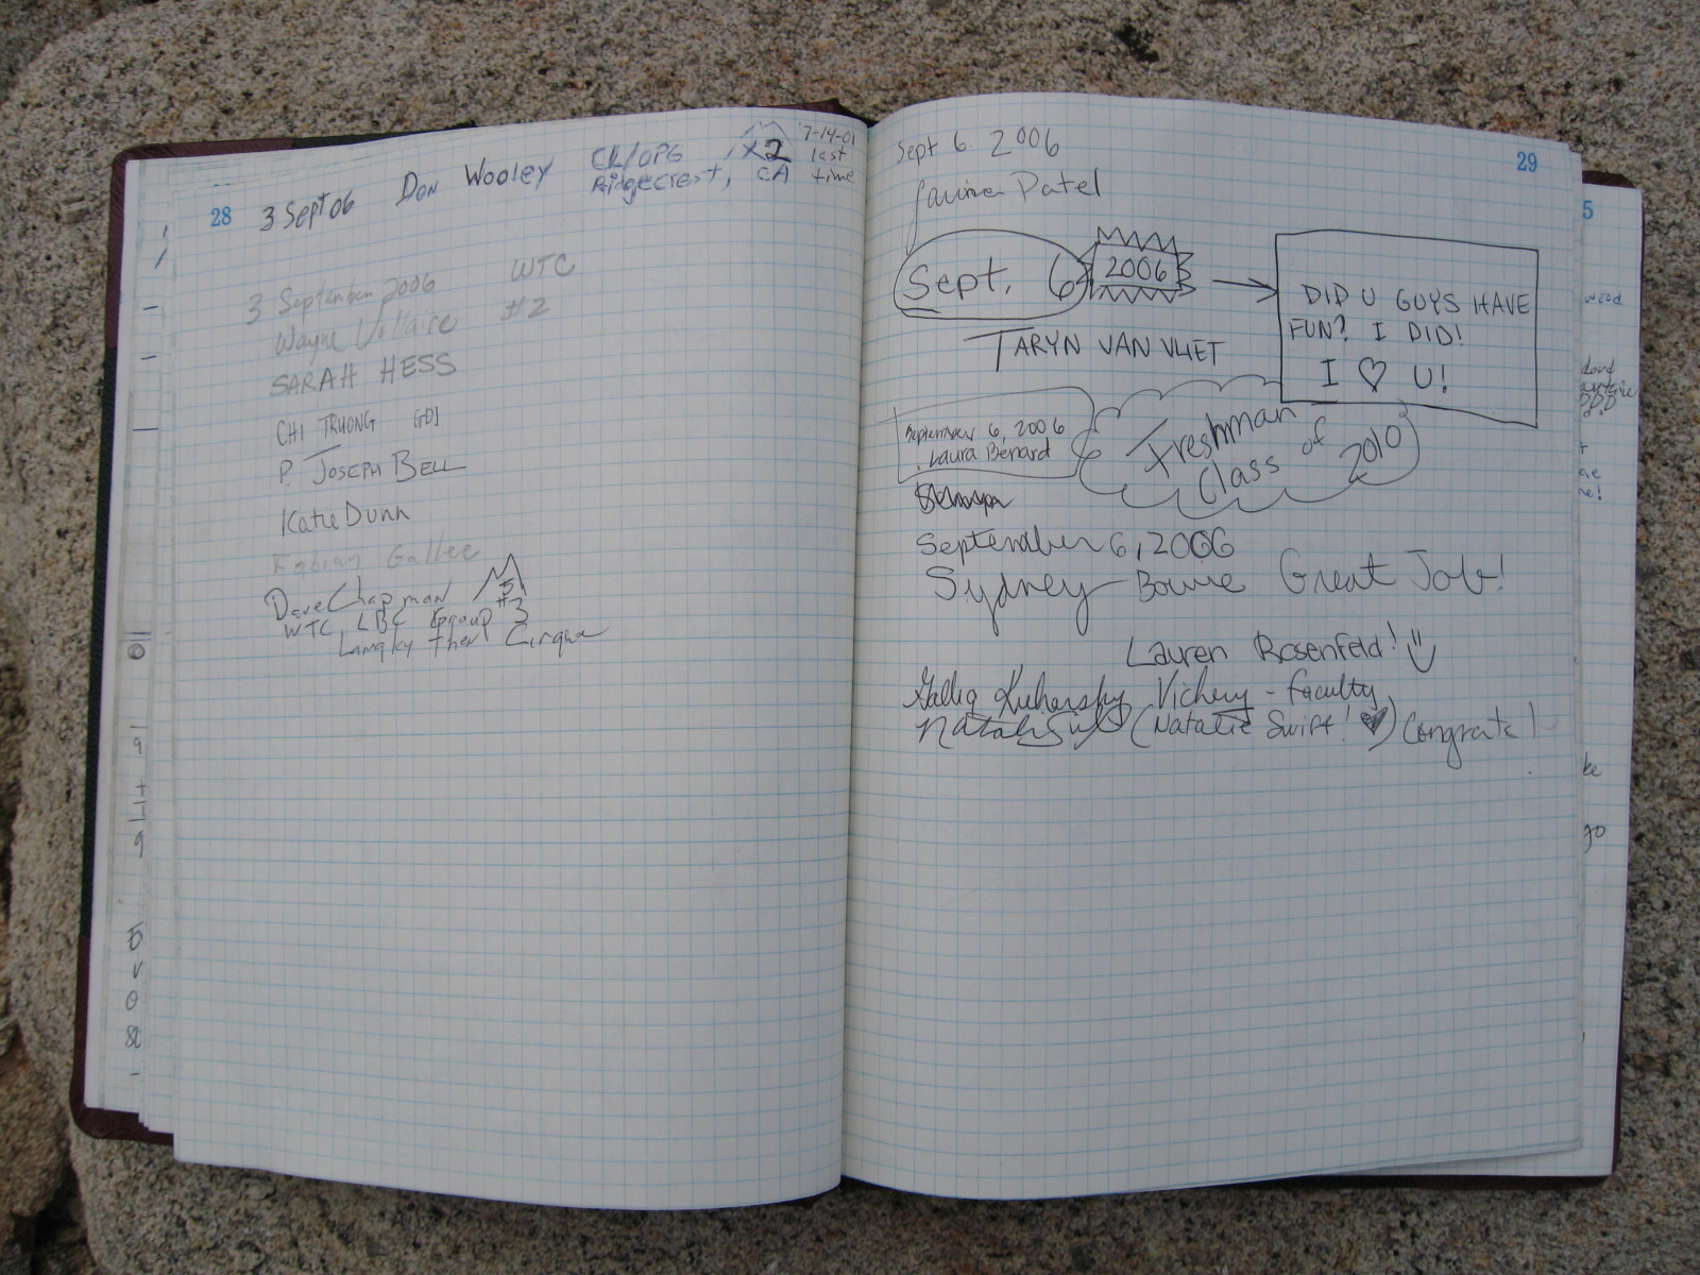 28 3 Sept 06 Don Wooley CL/OPG X2 7-14-01
Ridgecrest, CA last time
3 September 2006 WTC
Wayne #2
SARAH HESS
CHI TRUONG
P. JOSEPH BELL
Katie Dunn
Fabian Gallee
Dave Chapman
WTC, LBC Group #3
Langley then Cirque
Sept 6. 2006
29
Patel
Sept. 6 2006
DID U GUYS HAVE
FUN? I DID!
I ♡ U!
TARYN VAN VLIET
September 6, 2006
Laura Benard
Freshman
Class of 2010
September 6, 2006
Sydney Bowie Great Job!
Lauren Rosenfeld!
Vickery - faculty
Natalie Swift (Natalie Swift! ♥) Congrats!
5
ke
go